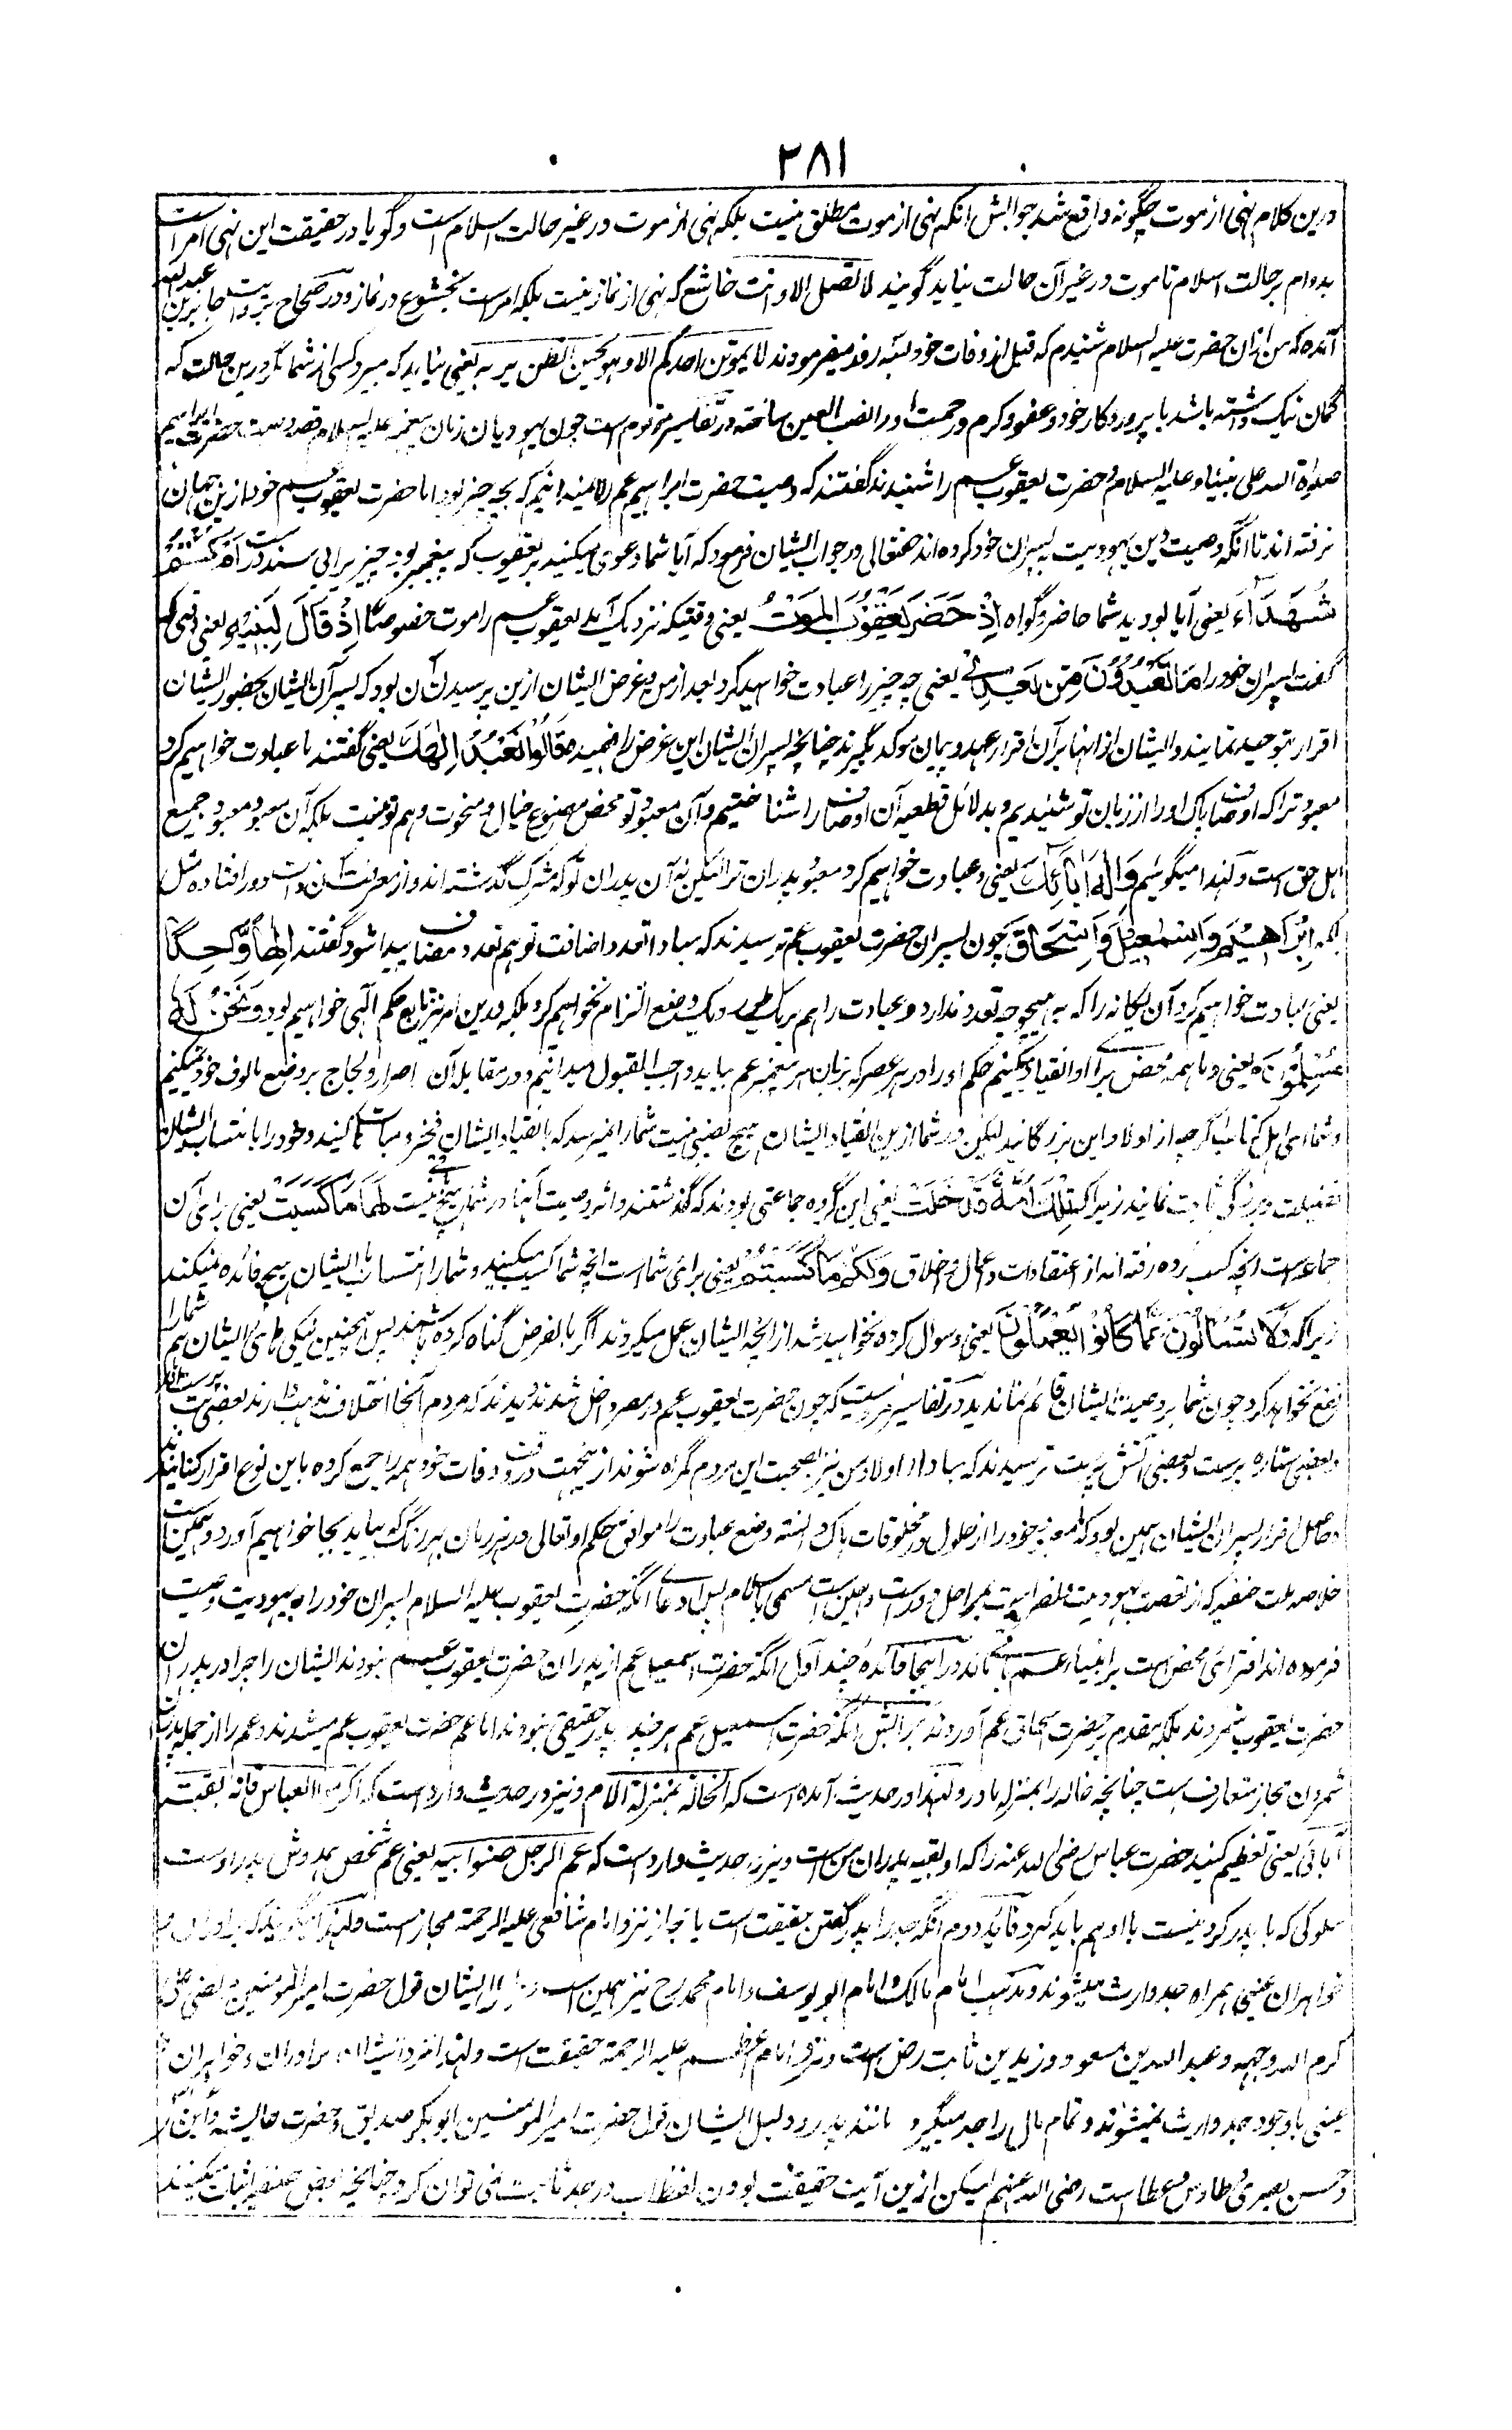 ٣٨١
درین کلام نہی از موت چگونہ واقع شد جوابش آنکہ نہی از موت مطلق نیست بلکہ نہی از موت در غیر حالت اسلام است و گویا در حقیقت این نہی امر است
بدوام بر حالت اسلام تا موت در غیر آن حالت نیاید گویند لا تصل الا و انت خاشع کہ نہی از نماز نیست بلکہ امر است بخشوع در نماز و در صحاح بروایت جابر بن عبد اللہ
آمدہ کہ من از آن حضرت علیہ السلام شنیدم کہ قبل از وفات خود بسہ روز میفرمودند لا یموتن احدکم الا و ہو یحسن الظن بربہ یعنی نباید کہ بمیرد کسی از شما مگر درین حالت کہ
گمان نیک داشتہ باشد با پروردگار خود و عفو و کرم و رحمت اورا نصب العین ساختہ در تفاسیر مرقوم است چون یہودیان زمان پیغمبر علیہ السلام قصہ وصیت حضرت ابراہیم
صلواۃ اللہ علی نبینا و علیہ السلام و حضرت یعقوب عم را شنیدند گفتند کہ وصیت حضرت ابراہیم عم را نمیدانیم کہ بچہ چیز بود اما حضرت یعقوب عم خود ازین جہان
نرفتہ اند تا آنکہ وصیت دین یہودیت بہ پسران خود کردہ اند حقتعالی در جواب ایشان فرمود کہ آیا شما دعوی میکنید بر یعقوب کہ پیغمبر بود چیزیرا بی سند درست اَمْ كُنْتُمْ
شُهَدَآءَ یعنی آیا بودید شما حاضر و گواہ اِذْ حَضَرَ يَعْقُوْبَ الْمَوْتُ یعنی وقتیکہ نزدیک آمد یعقوب عم را موت خصوصًا اِذْ قَالَ لِبَنِيْهِ یعنی وقتی کہ
گفت پسران خود را مَا تَعْبُدُوْنَ مِنْ بَعْدِيْ یعنی چہ چیز را عبادت خواہید کرد بعد از من و غرض ایشان ازین پرسیدن آن بود کہ پسران ایشان بحضور ایشان
اقرار بتوحید نمایند و ایشان از آنہا بر آن اقرار عہد و پیمان موکد بگیرند چنانچہ پسران ایشان این غرض را فہمیدہ قَالُوْا نَعْبُدُ اِلٰهَكَ یعنی گفتند ما عبادت خواہیم کرد
معبود ترا کہ اوصاف پاک اورا از زبان تو شنیدیم و بدلائل قطعیہ آن اوصاف را شناختیم و آن معبود تو محض مصنوع خیال و منحوت وہم تو نیست بلکہ آن معبود معبود جمیع
اہل حق است و لہذا میگوئیم وَاِلٰهَ اٰبَآئِكَ یعنی و عبادت خواہیم کرد معبود پدران ترا لیکن نہ آن پدران تو کہ مشرک گذشتہ اند و از معرفت آن ذات دور افتادہ مثل
بلکہ اِبْرَاهِيْمَ وَاِسْمٰعِيْلَ وَاِسْحَاقَ چون پسران حضرت یعقوب عم ترسیدند کہ مبادا از تعدد اضافت توہم تعدد مضاف پیدا شود گفتند اِلٰهًا وَّاحِدًا
یعنی عبادت خواہیم کرد آن یگانہ را کہ بہیچ وجہ تعدد ندارد و عبادت را ہم بر یک طور و یک وضع التزام نخواہیم کرد بلکہ درین امر نیز تابع حکم الٰہی خواہیم بود وَنَحْنُ لَهٗ
مُسْلِمُوْنَ ہ یعنی و ما ہمہ محض برای او انقیاد میکنیم حکم اورا در ہر عصر کہ بزبان ہر پیغمبر عم بیاید واجب القبول میدانیم و در مقابلہ آن اصرار و لجاج بر وضع مالوف خود نمیکنیم
و شما ای اہل کتاب اگرچہ از اولاد این بزرگانید لیکن در شما ازین انقیاد ایشان ہیچ نصیبی نیست شما را نمیرسد کہ بانقیاد ایشان فخر و مباہات کنید و خود را بانتساب ایشان
فضیلت و بزرگی ثابت نمائید زیرا کہ تِلْكَ اُمَّةٌ قَدْ خَلَتْ یعنی این گروہ جماعتی بودند کہ گذشتند و اثر وصیت آنہا در شما ہیچ نیست لَهَا مَا كَسَبَتْ یعنی برای آن
جماعت است آنچہ کسب کردہ رفتہ اند از اعتقادات و اعمال و اخلاق وَلَكُمْ مَا كَسَبْتُمْ یعنی برای شماست آنچہ شما کسب میکنید و شما را انتساب با ایشان ہیچ فائدہ نمیکند
زیرا کہ وَلَا تُسْئَلُوْنَ عَمَّا كَانُوْا يَعْمَلُوْنَ یعنی و سوال کردہ نخواہید شد از آنچہ ایشان عمل میکردند اگر بالفرض گناہ کردہ باشند پس ہمچنین نیکی ہای ایشان ہم شما را
نفع نخواہد کرد چون شما بر وصیت ایشان قائم نماندید در تفاسیر مذکور است کہ چون حضرت یعقوب عم در مصر داخل شدند دیدند کہ مردم آنجا اختلاف مذہب دارند بعضی بت پرست اند
و بعضی ستارہ پرست و بعضی آتش پرست ترسیدند کہ مبادا اولاد من نیز بصحبت این مردم گمراہ شوند از ینجہت در وقت وفات خود ہمہ را جمع کردہ باین نوع اقرار کنانیدند
و حاصل اقرار پسران ایشان ہمین بود کہ معبود خود را از حلول در مخلوقات پاک دانستہ وضع عبادت را موافق حکم او تعالی در ہر زمان بہر رنگ کہ بیاید بجا خواہیم آورد و ہمین است
خلاصہ ملت حنفیہ کہ از تعصب یہودیت و نصرانیت بمراحل دور است و ہمین است مسمی باسلام پس ادعای آنکہ حضرت یعقوب علیہ السلام پسران خود را بیہودیت وصیت
فرمودہ اند افترای محض است بر انبیاء عم باقی ماند در اینجا فائدۂ چند اول آنکہ حضرت اسمعیل عم از پدران حضرت یعقوب عم نبودند ایشان را چرا در پدران
حضرت یعقوب شمردند بلکہ مقدم بر حضرت اسحاق عم آوردند جوابش آنکہ حضرت اسمعیل عم ہرچند پدر حقیقی نبودند اما عم حضرت یعقوب عم میشدند و عم را از جملہ پدران
شمردن مجاز متعارف است چنانچہ خالہ را بمنزلہ مادر و لہذا در حدیث آمدہ است کہ الخالۃ بمنزلۃ الام و نیز در حدیث وارد است کہ اکرموا العباس فانہ بقیۃ
آبائی یعنی تعظیم کنید حضرت عباس رضی اللہ عنہ را کہ او بقیہ پدران من است و نیز در حدیث وارد است کہ عم الرجل صنو ابیہ یعنی عم شخص ہمدوش پدر اوست
سلوکی کہ با پدر کردنیست با او ہم باید کرد فائدہ دوم آنکہ جد را پدر گفتن حقیقت است یا مجاز نزد امام شافعی علیہ الرحمۃ مجاز است و لہذا میگویند کہ برادران و
خواہران عینی ہمراہ جد وارث میشوند و مذہب امام مالک و امام ابو یوسف و امام محمد رح نیز ہمین است ایشان قول حضرت امیر المومنین مرتضی علی
کرم اللہ وجہہ و عبد اللہ بن مسعود و زید بن ثابت رض است و نزد امام اعظم علیہ الرحمۃ حقیقت است و لہذا نزد ایشان برادران و خواہران
عینی با وجود جد وارث نمیشوند و تمام مال را جد میگیرد مانند پدر و دلیل ایشان قول حضرت امیر المومنین ابو بکر صدیق و حضرت عائشہ و ابن عباس
و حسن بصری و طاوس و عطا است رضی اللہ عنہم لیکن ازین آیت حقیقت بودن لفظ اب در جد ثابت نمی توان کرد چنانچہ بعض حنفیہ اثبات میکنند